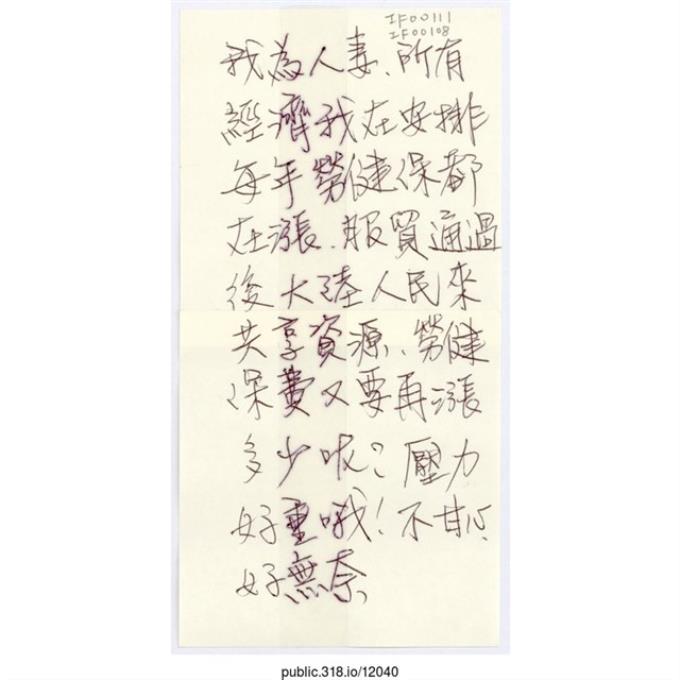 IF00111
IF00108
我為人妻、所有
經濟我在安排
每年勞健保都
在漲、服貿通過
後大陸人民來
共享資源、勞健
保費又要再漲
多少呢？壓力
好重哦！不甘心
好無奈
public.318.io/12040